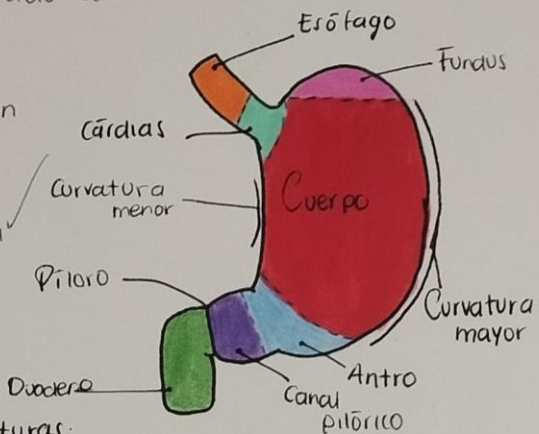 Esōfago
Fundus
n
Cārdias
Curvatura
menor
Cuerpo
Pīloro
Curvatura
mayor
Duodeno
Antro
Canal
pilōrico
turas.